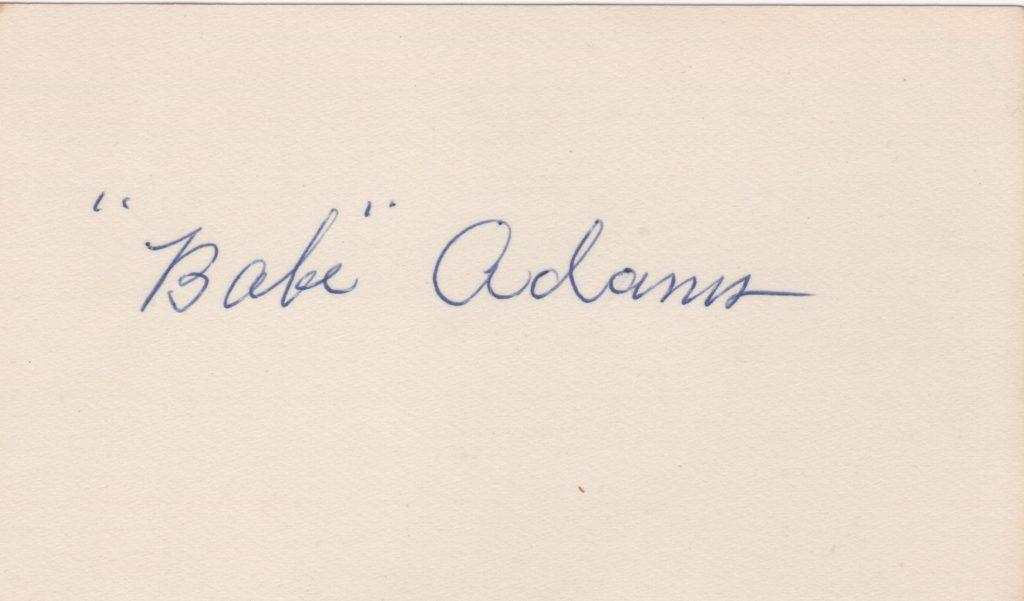 "Babe" Adams